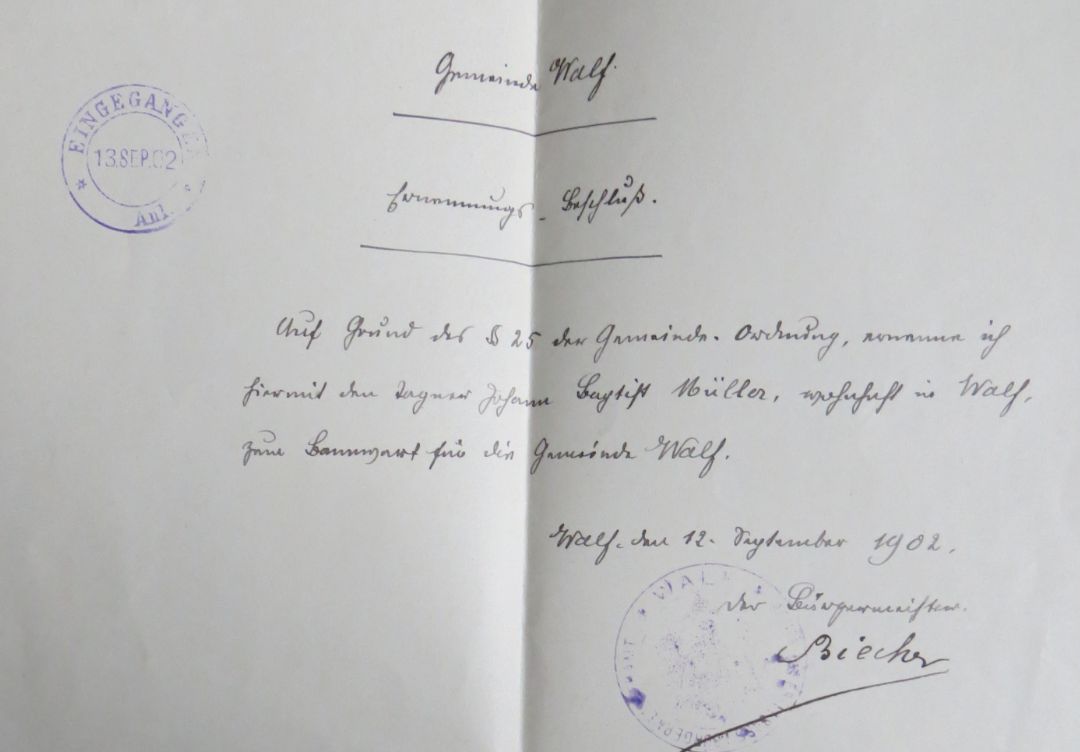 Gemeinde Walf.
EINGEGANGEN
13.SEP.02
Anl.
Ernennungs-Beschluß.
Auf Grund des § 25 der Gemeinde-Ordnung, ernenne ich
hiermit den Tagner Johann Baptist Müller, wohnhaft in Walf,
zum Bannwart für die Gemeinde Walf.
Walf, den 12. September 1902.
WALF
Der Bürgermeister.
Biecher